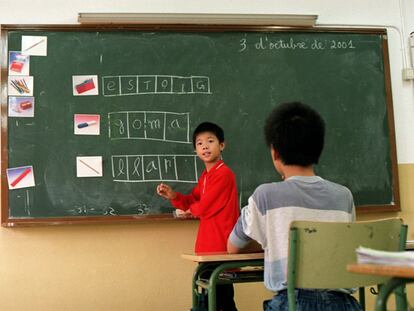 3 d'octubre de 2001
eSTOIG
goma
llar